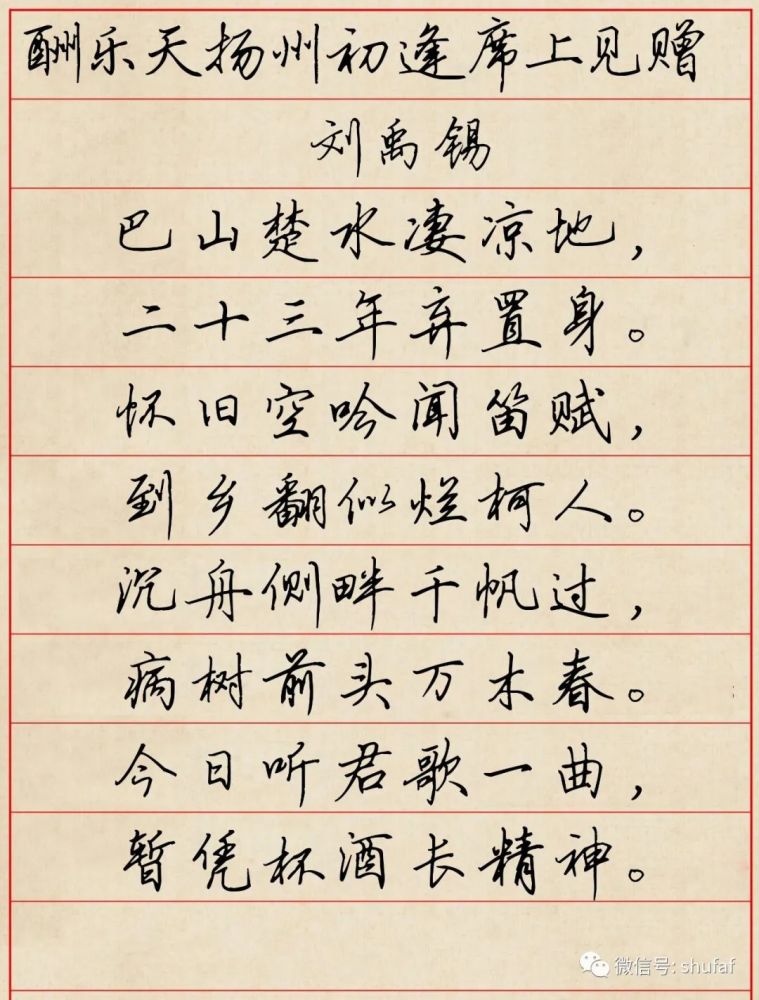 酬乐天扬州初逢席上见赠
刘禹锡
巴山楚水凄凉地，
二十三年弃置身。
怀旧空吟闻笛赋，
到乡翻似烂柯人。
沉舟侧畔千帆过，
病树前头万木春。
今日听君歌一曲，
暂凭杯酒长精神。
微信号: shufaf